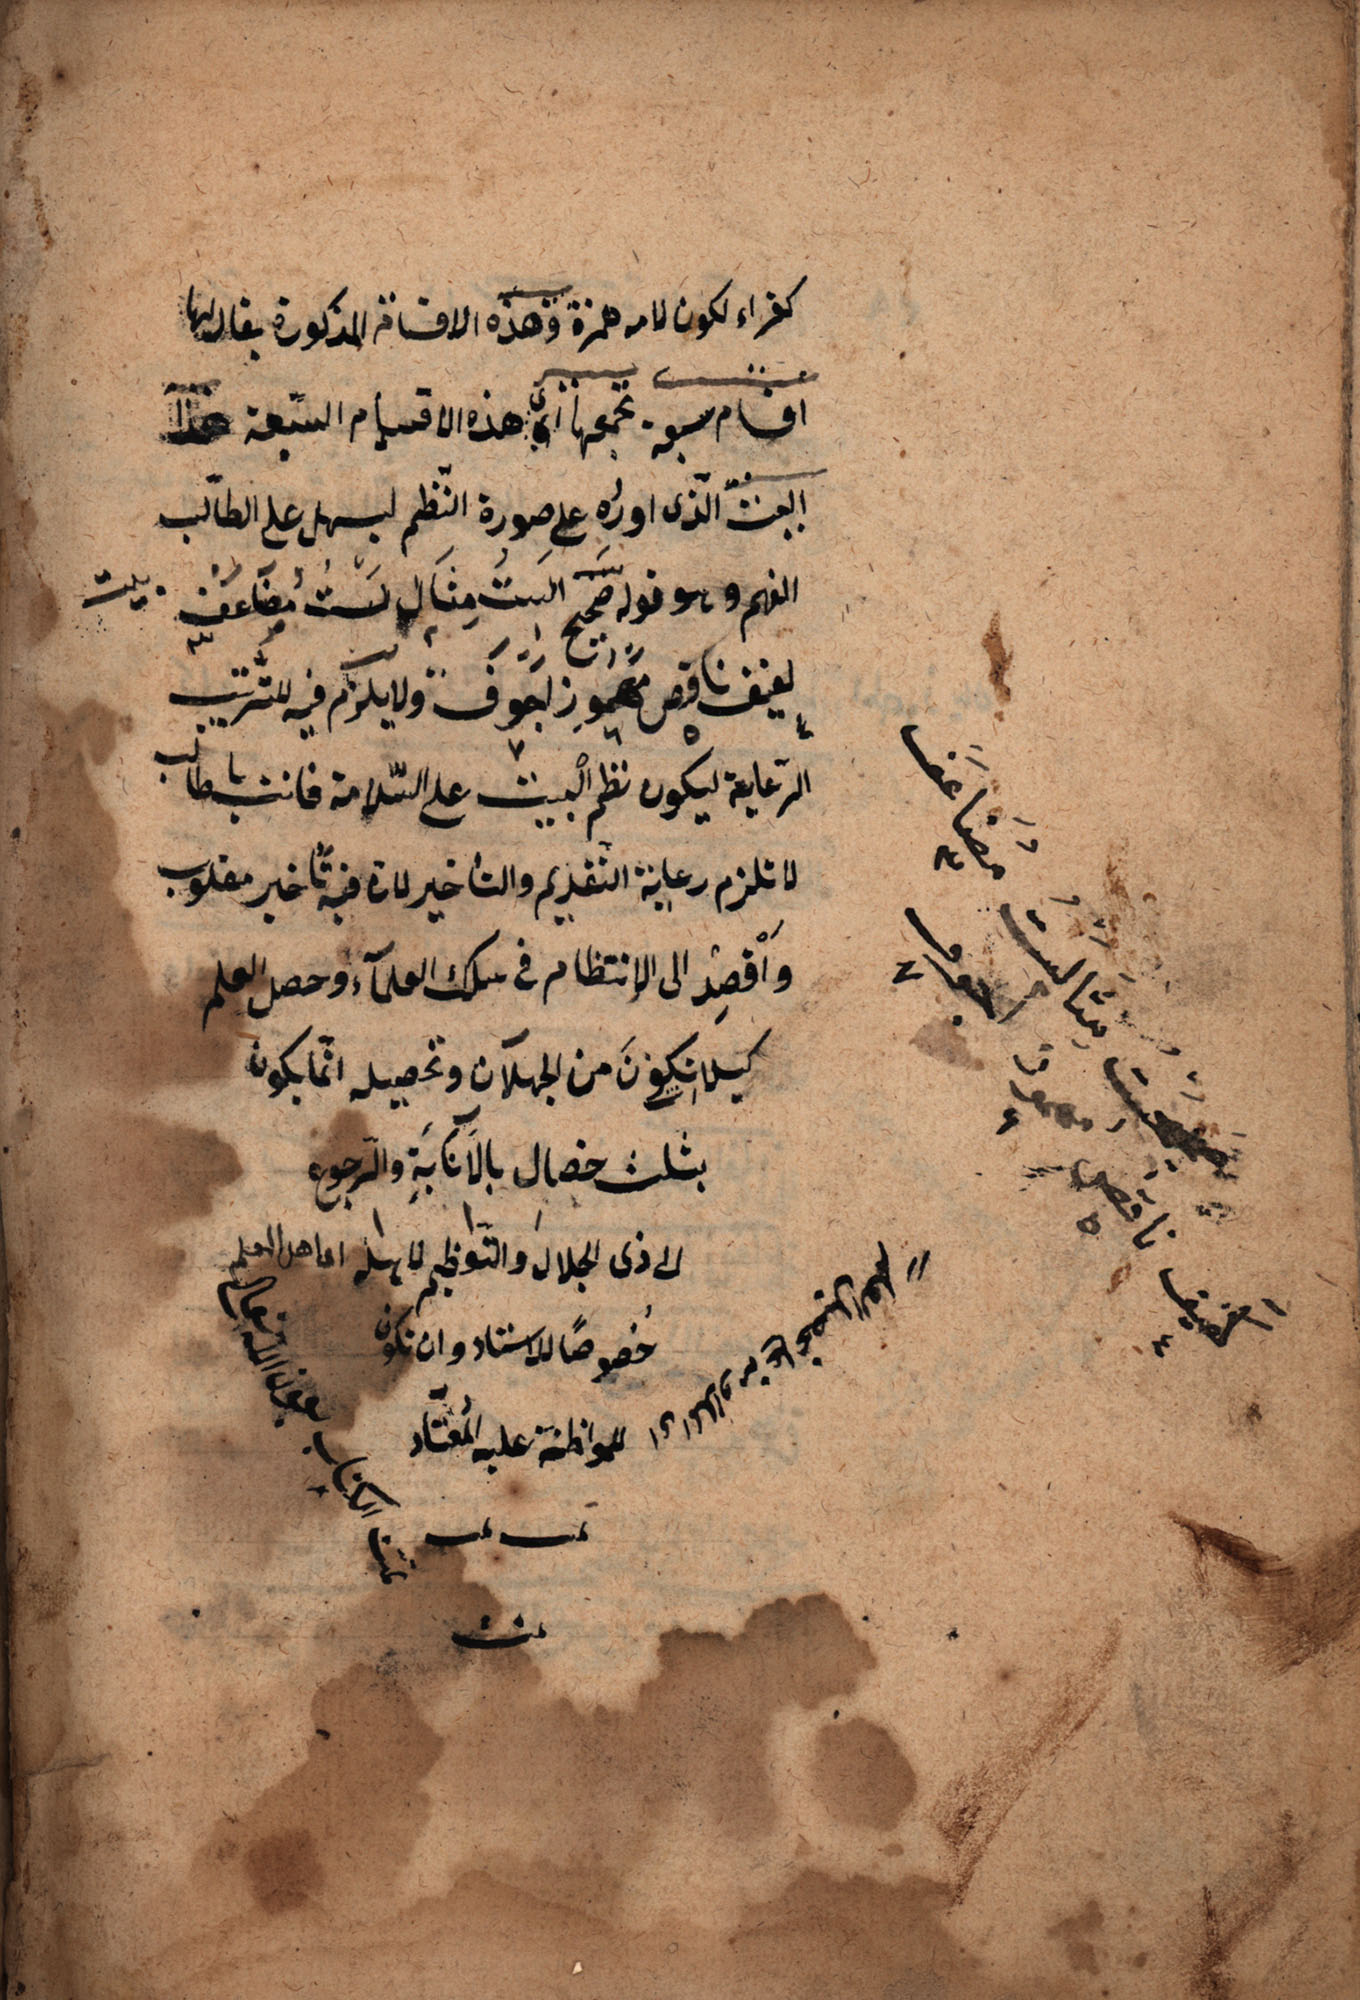 كقراء لكون لامه همزة وهذه الاقسام المذكورة يقال لها
اقسام سبعة تجمعها اى هذه الاقسام السبعة هذا
البيت الّذى اورده على صورة النّظم ليسهل على الطالب
الفهم وهو قوله صَحِيح اَلستُ مِثَالِ لَسْتُ مُضَاعَف
لفيف ناقص مهموز اَجْوَف ولا يلزم فيه للتّرتيب
الرّعاية ليكون نظم البيت على السّلامة فانت يا طالب
لا تلزم رعاية التّقديم والتأخير لان فيه تأخير مقلوب
وَاَقْصِدْ الى الإنتظام فى سلك العلمآء وحصل العلم
كيلا تكونَ من الجهلان وتحصيله انّما يكون
بثلث خصال بالانابَةِ والرّجوع
الى ذى الجلال والتّواظيم لاهله اى اهل العلم
خُصوصًا للاستاد وان تكون
للمواظبة عليه المُعْتاد
تمت تمت
تمت
تمت الكتاب بعون اللّه
مضاعف
٣
صحيحست مثالست
اجوف
٧
لفيف
٤
ناقص
٥
مهموز
٦